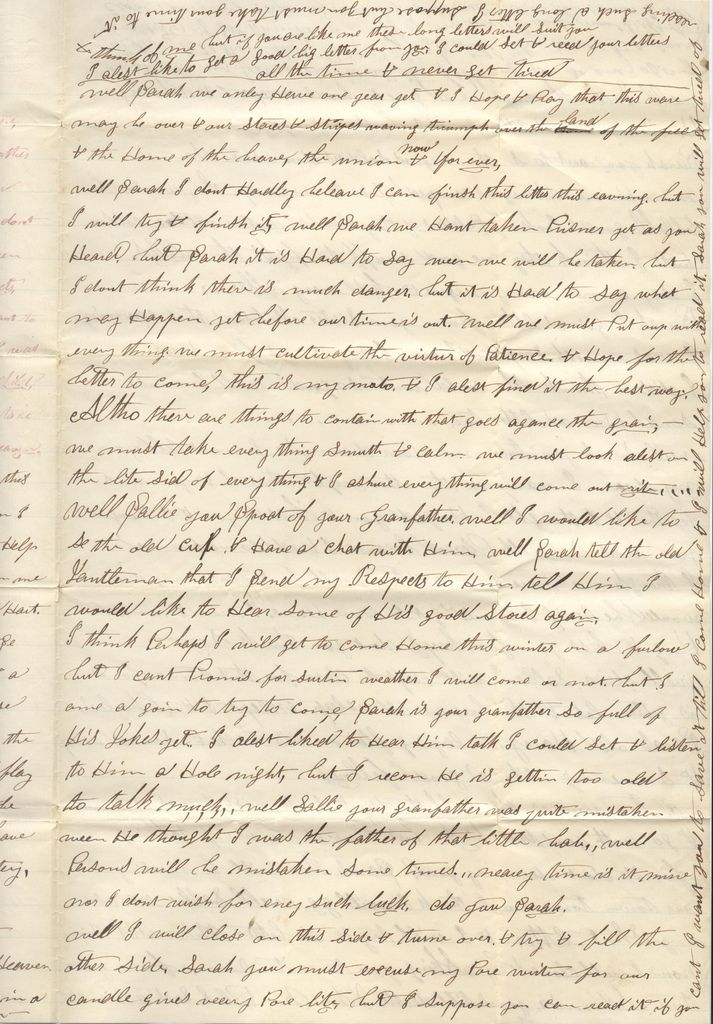 think of me but if you are like me these long letters will suit you
I alest like to get a good big letter from you I could set & reed your letters
all the time & never get tired
well Sarah we only Herve one year yet & I Hope & Pray that this ware
may be over & our Stares & Stripes waving triumph over the land of the free
& the Home of the brave, the union now & for ever,
well Sarah I dont Hardley beleave I can finsh this letter this eavning. but
I will try & finsh it, well Sarah we Hant taken Prisner yet as you
Heard, but Sarah it is Hard to Say ween we will be taken. but
I dont think there is much danger, but it is Hard to Say what
may Happen yet before our time is out. well we must Put oup with
every thing we must cultivate the virtur of Patience. & Hope for the
better to come, this is my moto. & I alest find it the best way.
Altho there are things to contain with that goes agance the grain,
we must take everything Smuth & calm. we must look alest on
the lite Sid of everything & I ashure everything will come out rite.....
well Sallie you Spoat of your Granfather. well I would like to
Se the old cuss. & Have a chat with Him. well Sarah tell the old
Gantleman that I Send my Respects to Him. tell Him I
would like to Hear Some of His good Stores again.
I think Perhaps I will get to come Home this winter on a furlow
but I cant Promis for surtin weather I will come or not. but I
ame a goin to try to come, Sarah is your granfather So full of
His Jokes yet. I alest liked to Hear Him talk I could Set & listen
to Him a Hole night, but I recon He is gettin too old
to talk much, well Sallie your granfather was quite mistaken
ween He thought I was the father of that little bab,, well
Persons will be mistaken Some times.,, neary time is it mine
nor I dont wish for eney such luck. do you Sarah.
well I will close on this Side & turne over. & try & fill the
other Side, Sarah you must execuse my Pore writin for our
candle gives veary Pore lite, but I suppose you can read it if you
cant I want you to save it till I come Home & I will Help you to read it. Sarah you will get tired of
reading Such a long letter I suppose but you must take your time to it